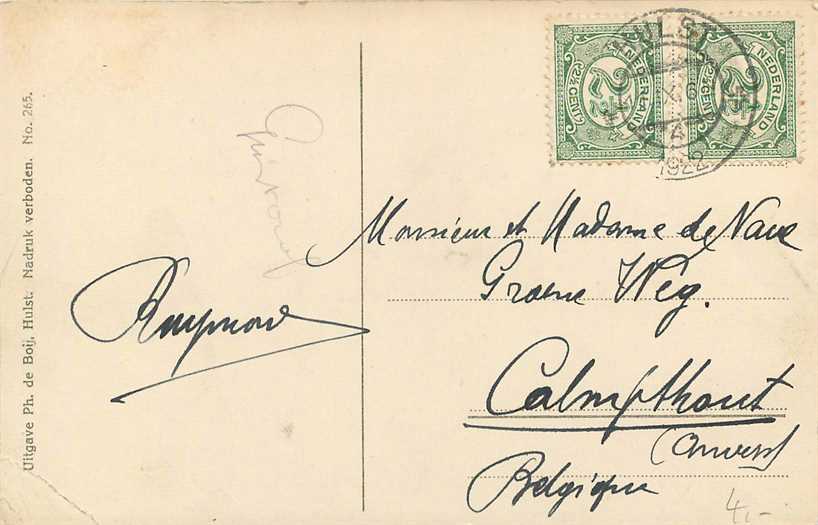 Uitgave Ph. de Boij, Hulst. Nadruk verboden. No. 265.
Raymond
NEDERLAND
2½
2½ CENT
NEDERLAND
2½
2½ CENT
HULST
1922
Monsieur et Madame de Nave
Groene Weg.
Calmpthout
(Anvers)
Belgique
4,-